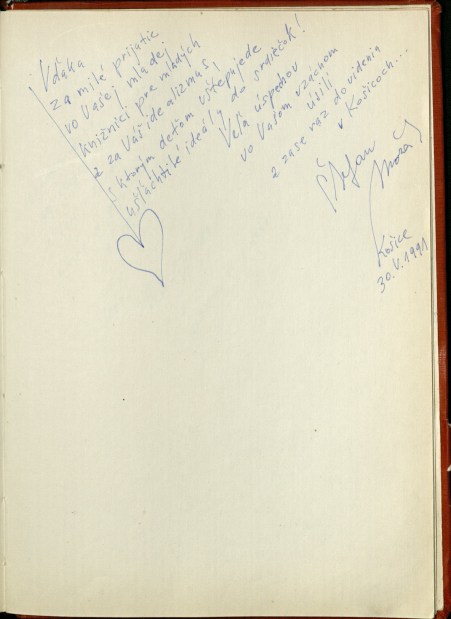 Vďaka
za milé prijatie
vo Vašej mladej
knižnici pre mladých
a za Váš idealizmus,
s ktorým deťom vštepujede
ušľachtilé ideály do srdiečok!
Veľa úspechov
vo Vašom vzácnom
úsilí
a zase raz do videnia
v Košicoch...
Štefan
Košice
30.V.1991